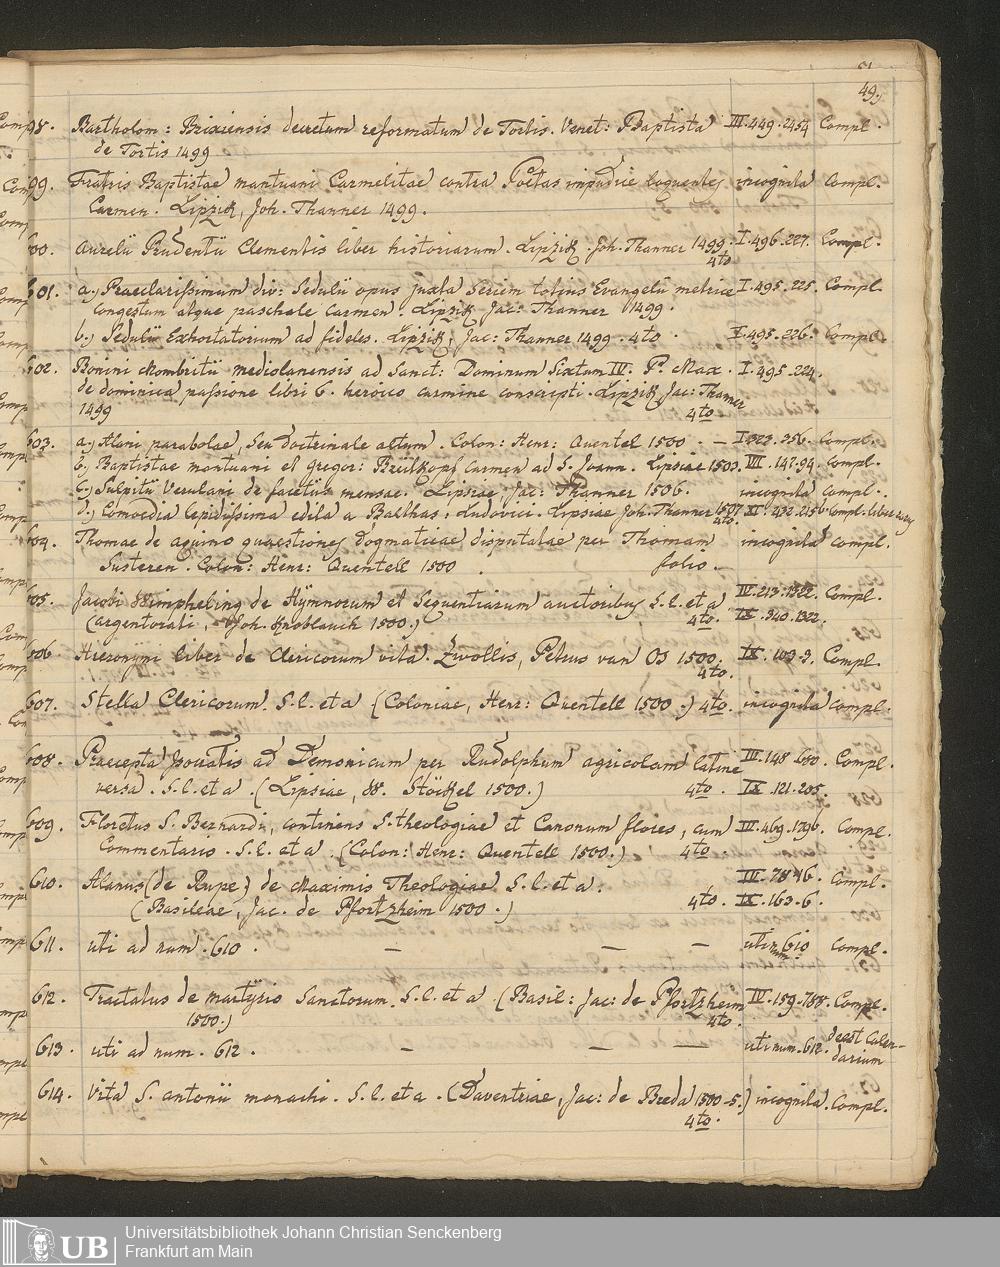 51
49.
98. Bartholom: Brixiensis decretum reformatum de Tortis. Venet: Baptista III. 449. 2454 Compl.
de Tortis 1499
99. Fratris Baptistae mantuani Carmelitae contra Poetas impudice loquentes incognita Compl.
Carmen. Lipzik, Joh. Thanner 1499.
600. Aurelii Prudentii Clementis liber historiarum. Lipzik Joh. Thanner 1499. I. 496. 227. Compl.
4to
601. a.) Praeclarissimum div: Sedulii opus juxta seriem totius Evangelii metrice I. 495. 225. Compl.
congestum atque paschale carmen. Lipzik Jac: Thanner 1499.
b.) Sedulii Exhortatorium ad fideles. Lipzik, Jac: Thanner 1499. 4to. I. 495. 226. Compl.
602. Bonini Mombritii mediolanensis ad Sanct: Dominum Sixtum IV. P. Max. I. 495. 224.
de dominica passione libri 6. heroico carmine conscripti. Lipzik Jac: Thanner
1499 4to.
603. a.) Alani parabolae, seu doctrinale altum. Colon: Henr: Quentel 1500. — I. 323. 356. Compl.
b.) Baptistae mantuani et Gregor: Breitkopf Carmen ad S. Joann. Lipsiae 1503. VII. 147. 94. Compl.
c.) Sulpitii Verulani de facetiis mensae. Lipsiae, Jac: Thanner 1506. incognita Compl.
d.) Comoedia lepidissima edita a Balthas. Ludovici. Lipsiae Joh. Thanner 1507 XI. 432. Compl. liber rarus
4to.
604. Thomae de aquino quaestiones dogmaticae disputatae per Thomam incognita Compl.
Susteren. Colon: Henr: Quentell 1500. folio.
605. Jacobi Wimpheling de Hymnorum et Sequentiarum auctoribus S. l. et a IV. 213. 1322. Compl.
(argentorati, Joh. Knoblauch 1500.) 4to. IX. 340. 1322.
606 Hieronymi liber de Clericorum vita. Zwollis, Petrus van Os 1500. IX. 109. 9. Compl.
4to.
607. Stella Clericorum. S. l. et a (Coloniae, Henr: Quentell 1500.) 4to. incognita Compl.
608. Praecepta Isocratis ad Demonicum per Rudolphum agricolam latine III. 148. 680. Compl.
versa. S. l. et a. (Lipsiae, W. Stöckel 1500.) 4to. IX. 121. 205.
609. Floretus S. Bernardi, continens S. theologiae et Canonum flores, cum IV. 469. 1796. Compl.
Commentario. S. l. et a. (Colon: Henr: Quentell 1500.) 4to
610. Alanus (de Rupe) de Maximis Theologiae S. l. et a. III. 78. 16. Compl.
(Basileae, Jac. de Pfortzheim 1500.) 4to. IX. 163. 6.
611. uti ad num. 610. — — — uti num 610 Compl.
612. Tractatus de martyrio Sanctorum. S. l. et a. (Basil: Jac: de Pfortzheim IV. 159. 788. Compl.
1500.) 4to.
613. uti ad num. 612. — — — uti num. 612. deest Calen-
darium
614. Vita S. antonii monachi. S. l. et a. (Daventriae, Jac: de Breda 1500-5.) incognita. Compl.
4to.
UB Universitätsbibliothek Johann Christian Senckenberg
Frankfurt am Main